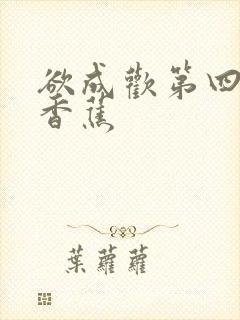 欲成歡第四
香蕉
葉蘿蘿